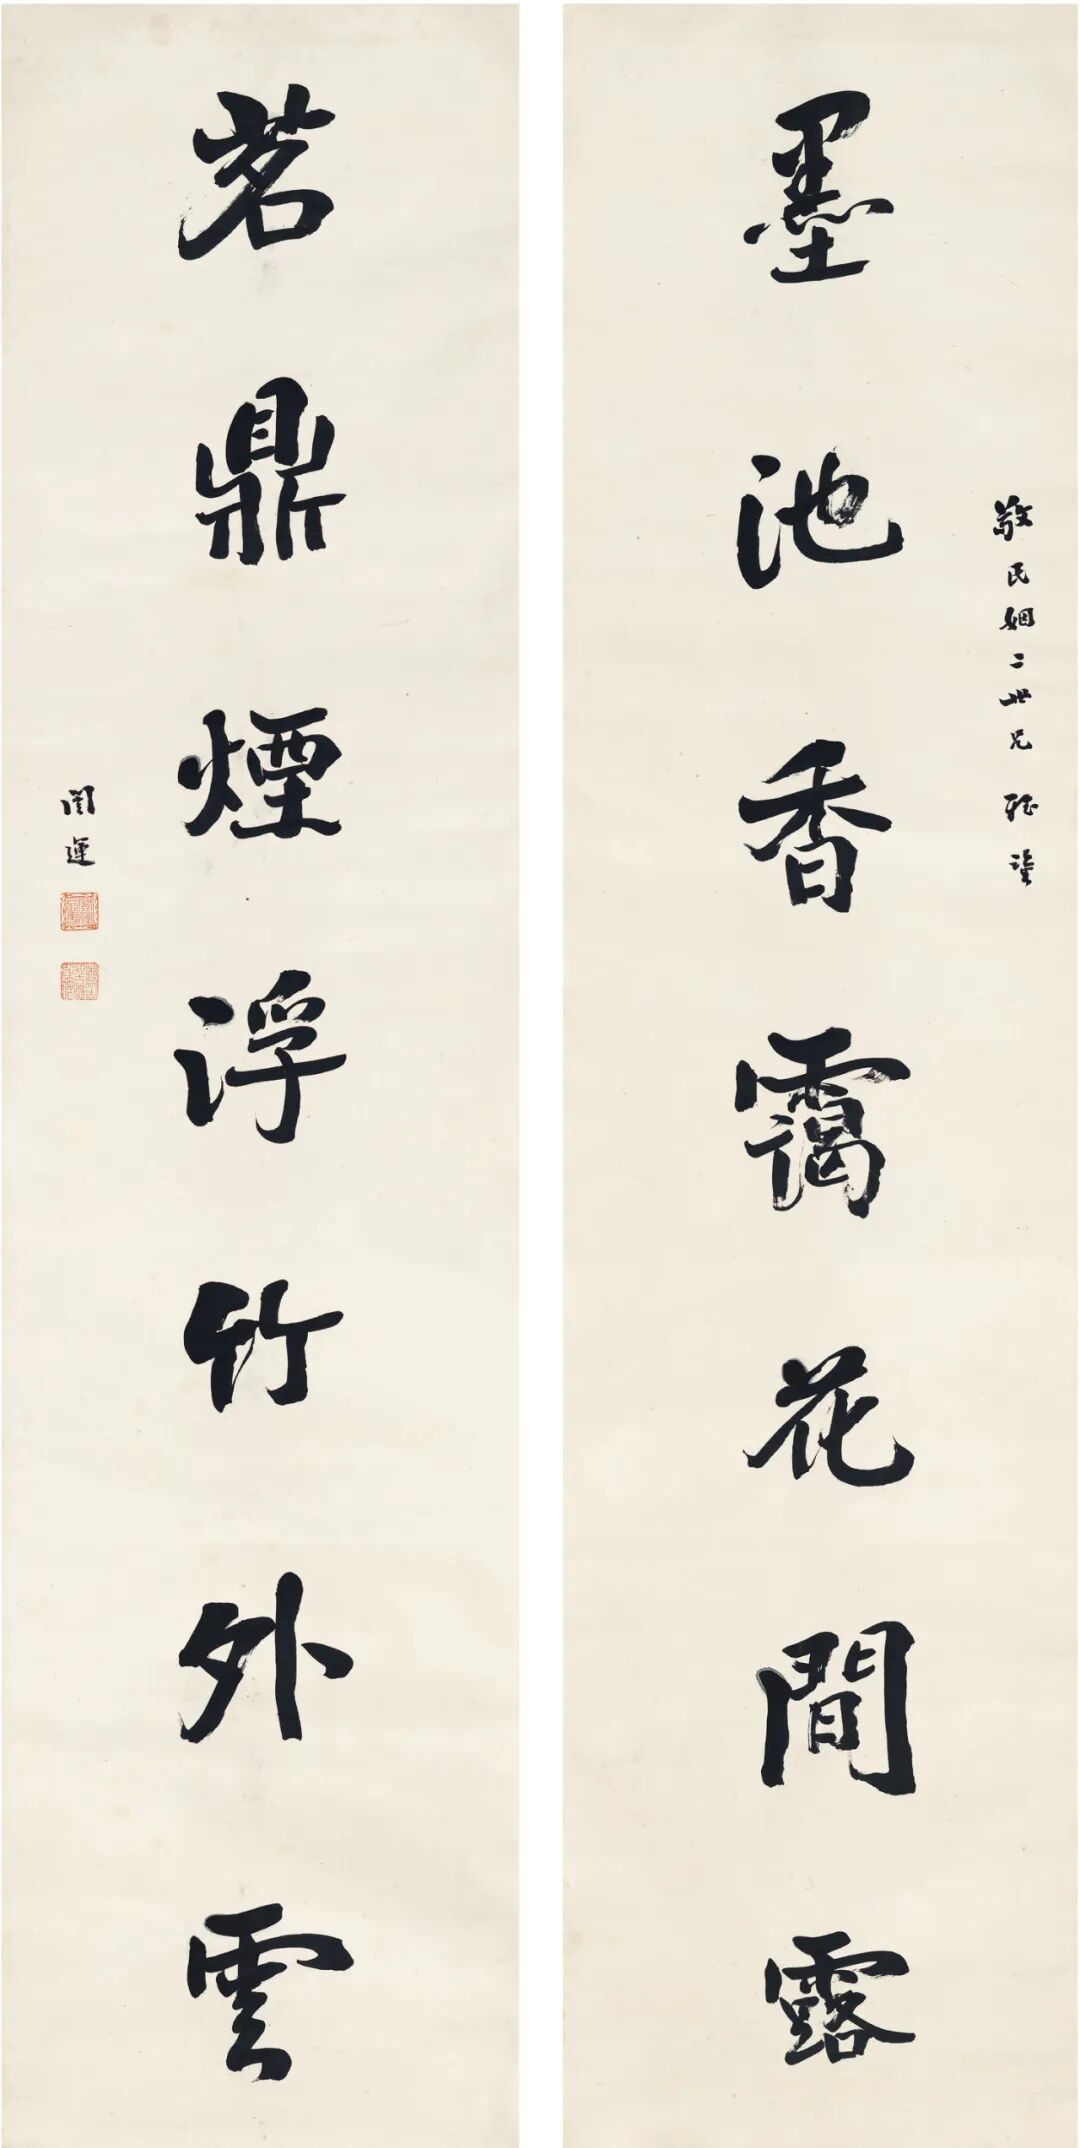 敬民姻二世兄 雅鑒
墨池香靄花間露
茗鼎煙浮竹外雲
闓運